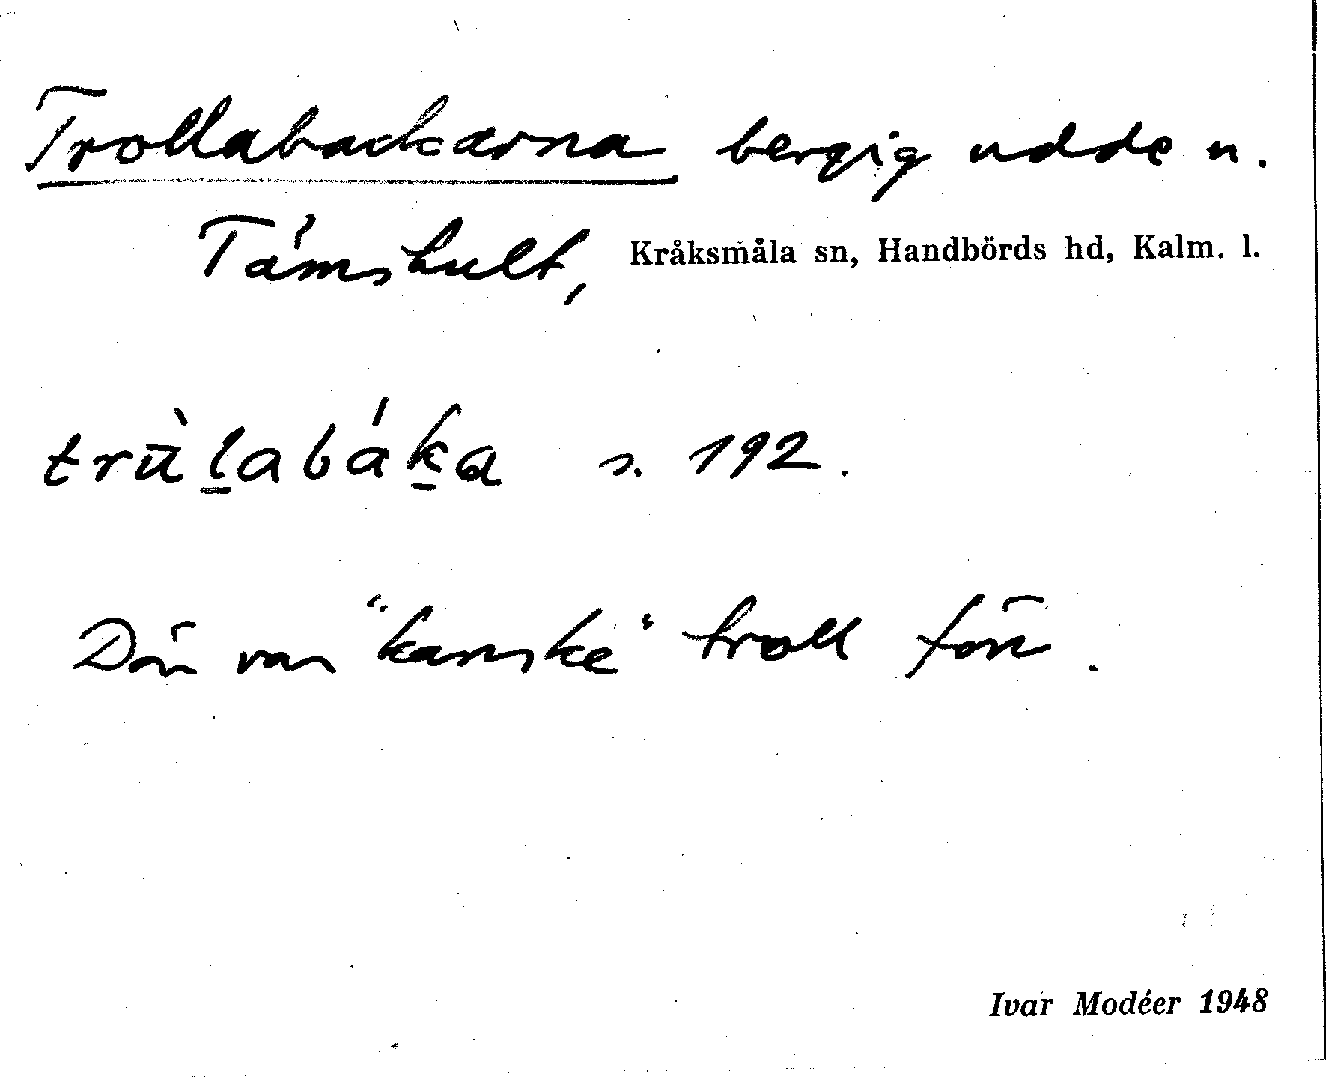 Trollabackarna bergig udde n.
Támshult, Kråksmåla sn, Handbörds hd, Kalm. l.
trǜl̲abák̲a s. 192.
Där var "kanske" troll förr.
Ivar Modéer 1948